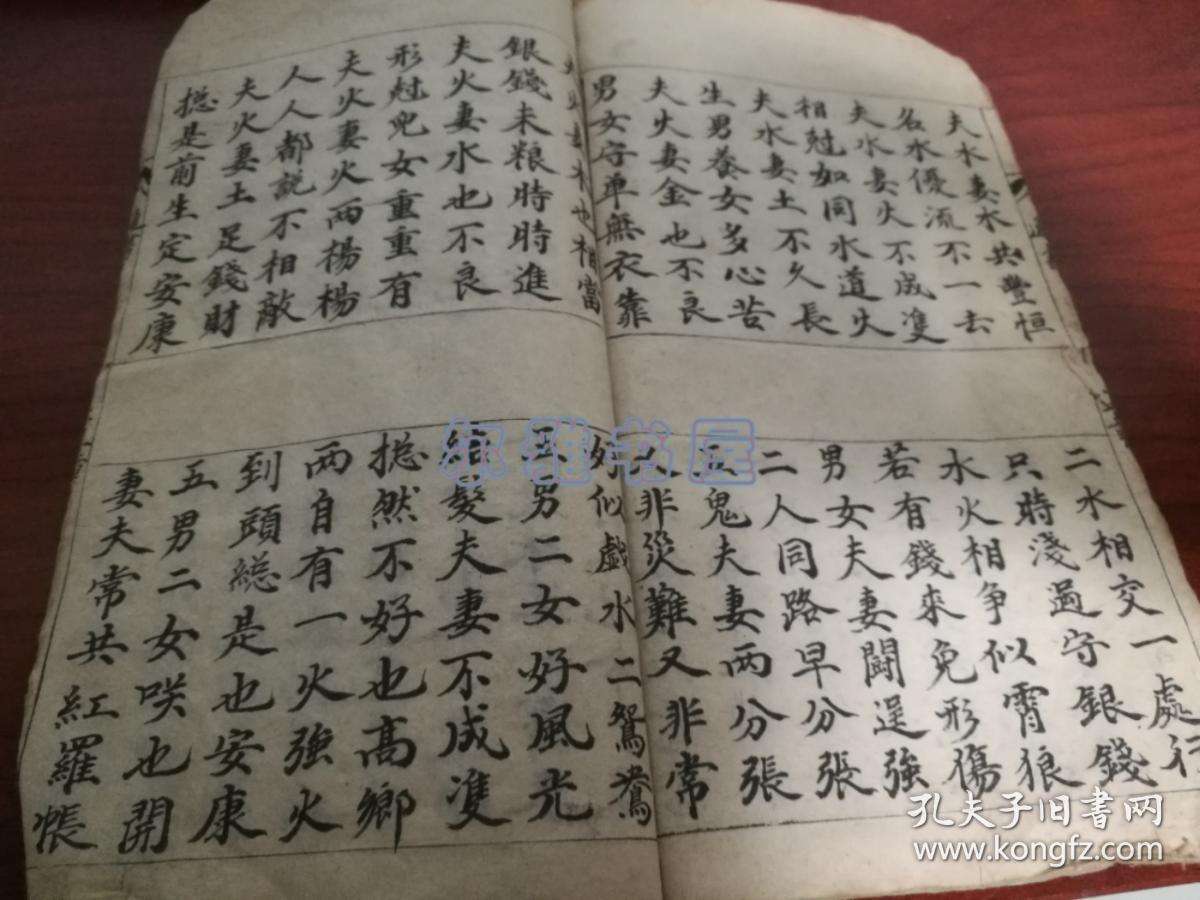 夫水妻水共豐恒
二水相交一處行
名水優流不一去
只時淺過守銀錢
夫水妻火不成隻
水火相争似霄狼
相尅如同水道火
若有錢來免形傷
夫水妻土不久長
男女夫妻鬪逞強
生男養女多心苦
二人同路早分張
夫火妻金也不良
五鬼夫妻兩分張
男女守单無衣靠
人非災難又非常
妻木也相當
好似戯水二鴛鴦
銀錢未粮時時進
五男二女好風光
夫火妻水也不良
結髮夫妻不成隻
形尅兒女重重有
捴然不好也高鄉
夫火妻火兩楊楊
兩自有一火強火
人人都説不相敵
到頭總是也安康
夫火妻土足錢財
五男二女咲也開
捴是前生定安康
妻夫常共紅羅帳
尔雅书屋
孔夫子旧书网
www.kongfz.com